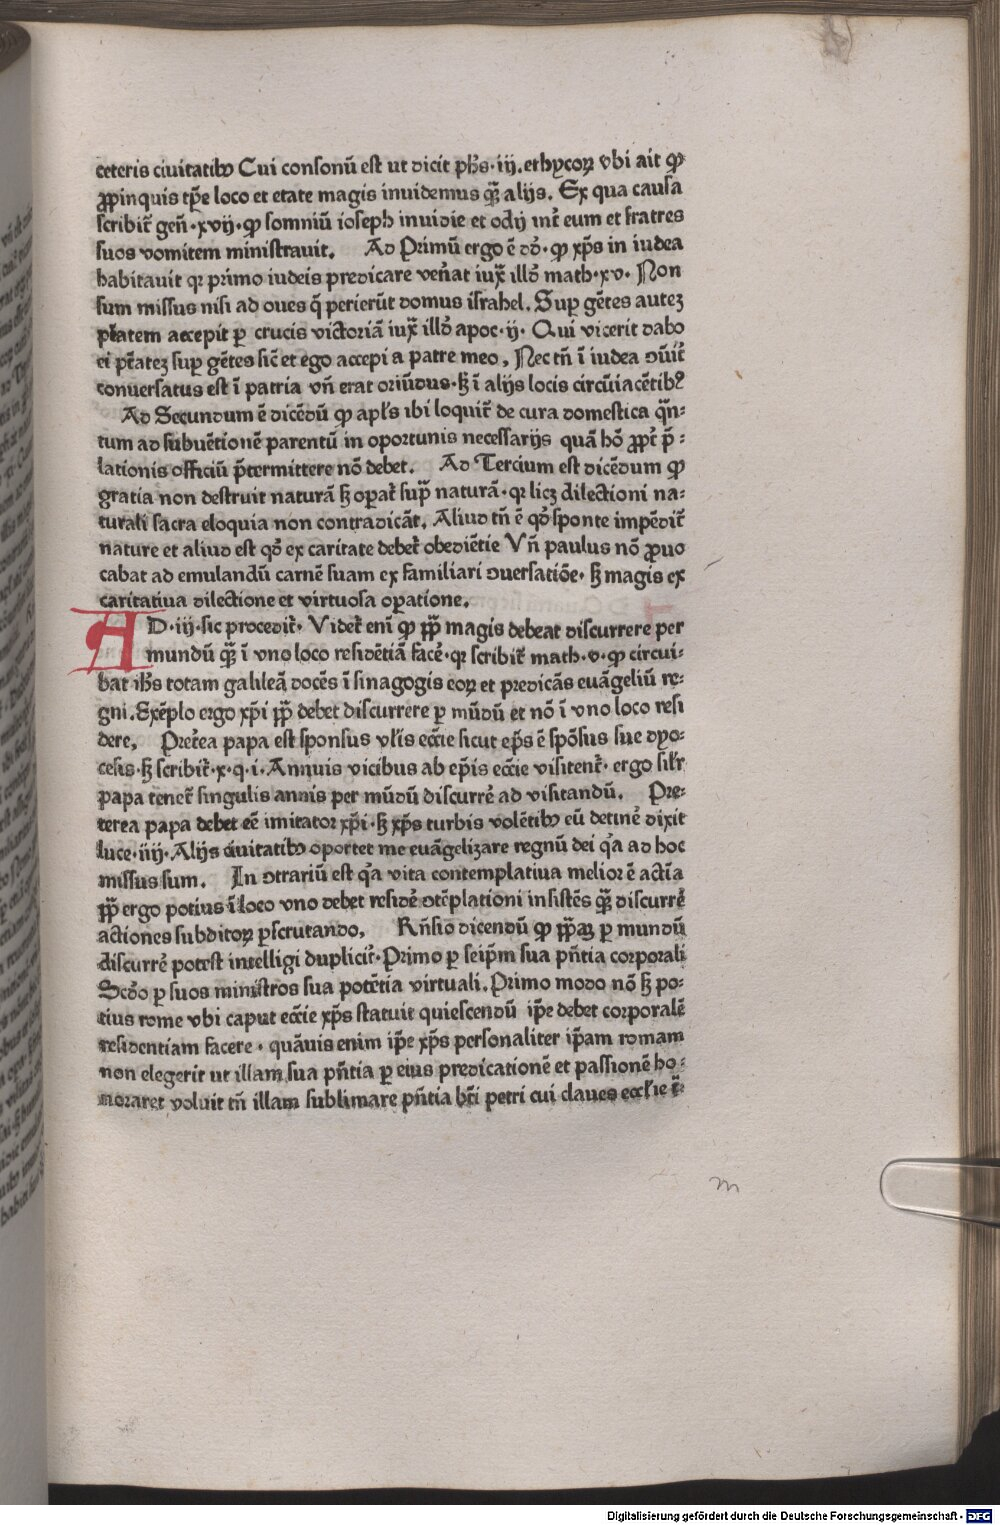 ceteris ciuitatibꝰ Cui consonū est ut dicit ph̄s·iij.ethycoꝝ vbi ait ꝙ
ꝓpinquis tp̄e loco et etate magis inuidemus ꝙ̄ alijs. Ex qua causa
scribit᷑ gen̄·xvij·ꝙ somniū ioseph inuidie et odij int᷑ eum et fratres
suos vomitem ministrauit. Ad Primū ergo ē dō·ꝙ xp̄s in iudea
habitauit qꝛ primo iudeis predicare ven̄at iux̄ illō math·xv·Non
sum missus nisi ad oues q̄ perierūt domus israhel. Suꝑ gētes autez
p̄tatem accepit ꝑ crucis victoriā iux̄ illō apoc·ij·Qui vicerit dabo
ei p̄tatez suꝑ gētes sic̄ et ego accepi a patre meo, Nec tn̄ ī iudea ꝯuīt᷑
conuersatus est ī patria vn̄ erat oriūdus·ꝫ ī alijs locis circūiacētibꝰ
Ad Secundum ē dicēdū ꝙ apl's ibi loquit᷑ de cura domestica qn̄-
tum ad subuētionē parentū in oportunis necessarijs quā hō ꝓpt᷑ p̄-
lationis officiū p̄termittere nō debet. Ad Tercium est dicēdum ꝙ
gratia non destruit naturā ꝫ oꝑat᷑ sup̄ naturā·qꝛ licꝫ dilectioni na-
turali sacra eloquia non contradicāt, Aliud tn̄ ē qd̄ sponte impēdit᷑
nature et aliud est qd̄ ex caritate debet᷑ obediētie Vn̄ paulus nō ꝓuo
cabat ad emulandū carnē suam ex familiari ꝯuersatiōe·ꝫ magis ex
caritatiua dilectione et virtuosa oꝑatione.
AD·iij·sic procedit᷑·Videt᷑ enī ꝙ pp̄ magis debeat discurrere per
mundū ꝙ̄ ī vno loco residētiā facē·qꝛ scribit᷑ math·v·ꝙ circui-
bat ih̄s totam galileā docēs ī sinagogis eoꝝ et predicās euāgeliū re-
gni.Exēplo ergo xp̄i pp̄ debet discurrere ꝑ mūdū et nō ī vno loco resi
dere, Pret᷑ea papa est sponsus vl'is eccīe sicut ep̄s ē spōsus sue dyo-
cesis·ꝫ scribit᷑·x·q·i·Annuis vicibus ab ep̄is eccīe visitent᷑·ergo sil'r
papa tenet᷑ singulis annis per mūdū discurrē ad visitandū. Pre-
terea papa debet eē imitator xp̄i·ꝫ xp̄s turbis volētibꝰ eū detinē dixit
luce·iiij·Alijs ciuitatibꝰ oportet me euāgelizare regnū dei qa ad hoc
missus sum. In ꝯtrariū est qa vita contemplatiua melior ē actīa
pp̄ ergo potius ī loco vno debet residē ꝯtēplationi insistēs ꝙ̄ discurrē
actiones subditoꝝ ꝑscrutando, Rn̄sio dicendū ꝙ pp̄aꝫ ꝑ mundū
discurrē potest intelligi duplicit᷑·Primo ꝑ seip̄m sua pn̄tia corporali
Scd̄o ꝑ suos ministros sua potētia virtuali.Primo modo nō ꝫ po-
tius rome vbi caput eccīe xp̄s statuit quiescendū ip̄e debet corporalē
residentiam facere·quāuis enim ip̄e xp̄s personaliter ip̄am romam
non elegerit ut illam sua pn̄tia ꝑ eius predicationē et passionē ho-
noraret voluit tn̄ illam sublimare pn̄tia bt̄i petri cui claues eccl'ie t᷑-
m
Digitalisierung gefördert durch die Deutsche Forschungsgemeinschaft - DFG